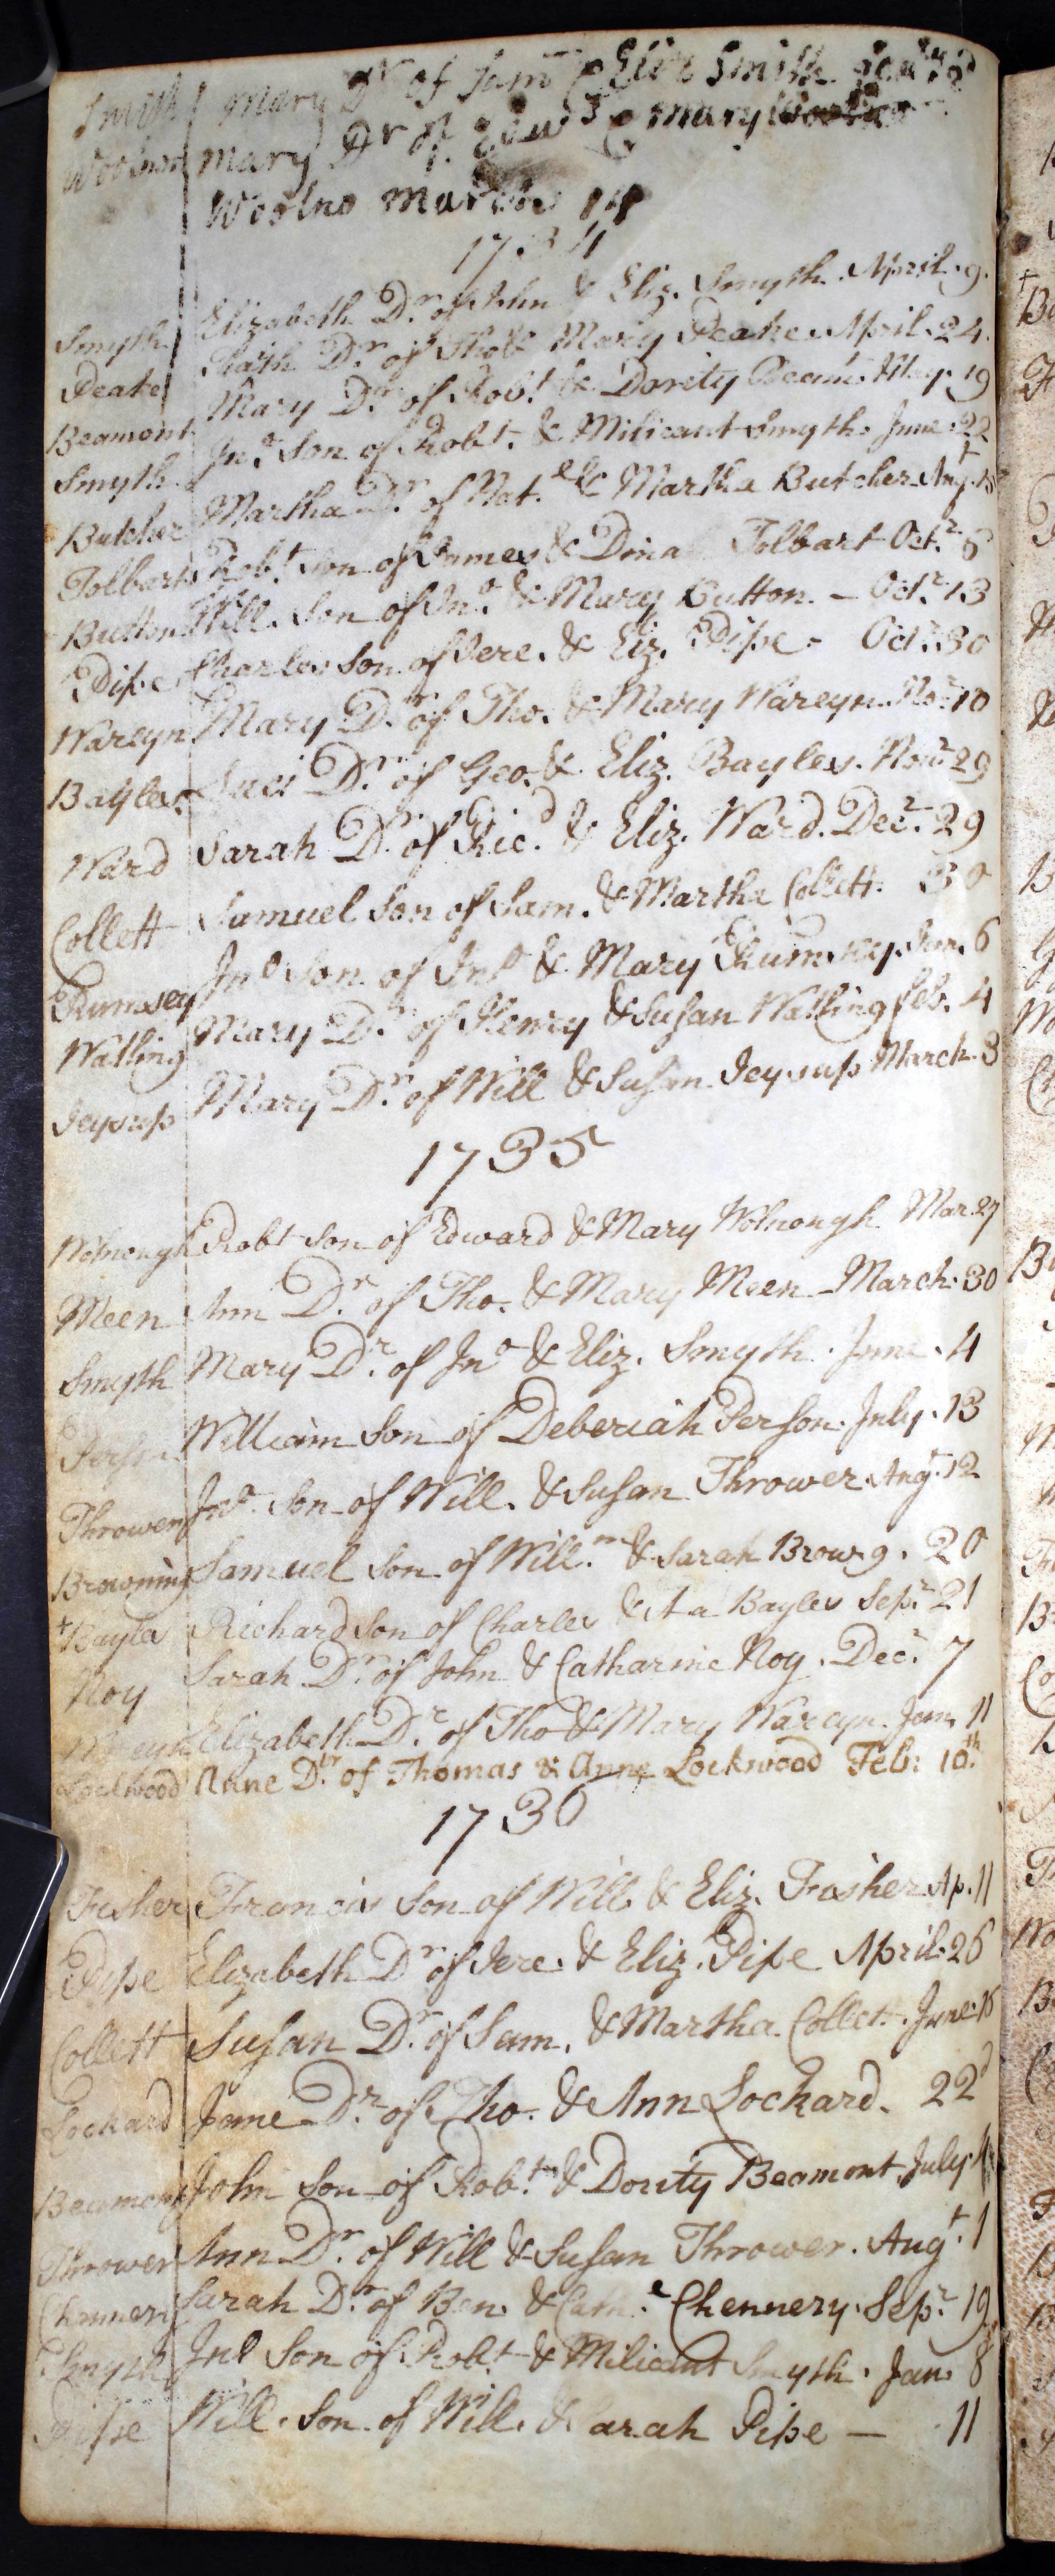 Smith mary Dr of Sam & Eliz Smith
Woolno mary Dr of Edw & mary
Woolno march 14
1734
Smyth Elizabeth Dr. of John & Eliz. Smyth. April. 9.
Peake Dr. of Tho & Mary Peake. April. 24.
Beamont Mary Dr. of Robt. & Dority Beamt. May. 19
Smyth Jno. Son of Robt. & Milicant Smyth. June. 22
Butcher Martha Dr. of Nat. & Martha Butcher Augt. 18
Tolbart Robt. Son of James & Dina Tolbart Octr. 6
Button Will. Son of Jno. & Mary Button. - Octr. 13
Pipe Charles Son of Jere. & Eliz. Pipe - Octr. 30
Wareyn Mary Dr. of Tho. & Mary Wareyn. Nor. 10
Bayles Dr. of Geo. & Eliz. Bayles. Novr. 29
Ward Sarah Dr. of Ricd. & Eliz. Ward. Decr. 29
Collett Samuel Son of Sam. & Martha Collett. 30
Rumsey Jno Son of Jno & Mary Rumsey. Jan. 6
Watling Mary Dr. of Henry & Susan Watling feb. 4
Jeysup Mary Dr. of Will & Susan Jeysup March. 3
1735
Wolnough Robt Son of Edward & Mary Wolnough Mar. 27
Meen Ann Dr. of Tho. & Mary Meen - March. 30
Smyth Mary Dr. of Jno & Eliz. Smyth. June. 4
William Son of Deberiah Person. July. 13
Thrower Jno. Son of Will. & Susan Thrower Augt. 12
Browning Samuel Son of Willm. & Sarah Browg. 20
+ Bayles Richard Son of Charles & Bayles Sepr. 21
Noy Sarah Dr. of John & Catharine Noy. Decr. 7
Wareyn Elizabeth Dr. of Tho & Mary Wareyn. Jan. 11
Lockwood Anne Dtr. of Thomas & Anne Lockwood Feb: 10th.
1736
Fisher Francis Son of Will & Eliz. Fisher Ap. 11
Pipe Elizabeth Dr of Jere. & Eliz. Pipe April. 26
Collett Susan Dr. of Sam. & Martha. Collet. June. 16
Lockard Jane Dr. of Tho. & Ann Lockard. 22d
Beamont John Son of Robt. & Dority Beamont. July
Thrower Ann Dr. of Will & Susan Thrower. Augt. 1
Chennery Sarah Dr. of Ben. & Chennery. Sepr. 19
Smyth Jno Son of Robt. & Milicant Smyth. Jan. 8
Pipe Will. Son of Will. & Sarah Pipe - 11